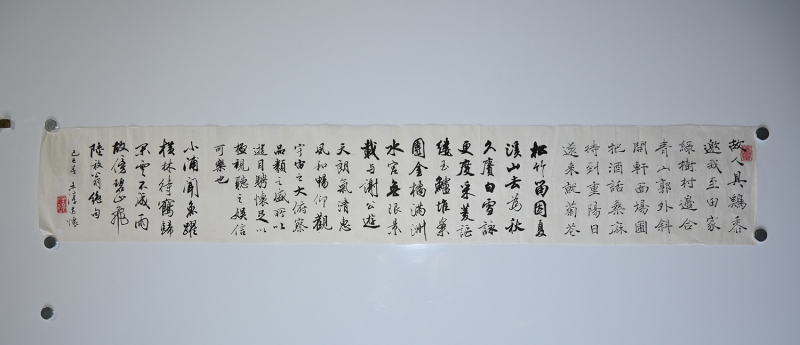 故人具鷄黍
邀我至田家
綠樹村邊合
青山郭外斜
開軒面場圃
把酒話桑麻
待到重陽日
還來就菊花
松竹留因夏
溪山去為秋
久賡白雪詠
更度采菱謳
縷玉鱸堆案
團金橘滿洲
水宮無限景
載與謝公遊
天朗氣清惠
風和暢仰觀
宇宙之大俯察
品類之盛所以
遊目騁懷足以
極視聽之娛信
可樂也
小浦聞魚躍
橫林待鶴歸
閑雲不成雨
故傍碧山飛
陸放翁絕句